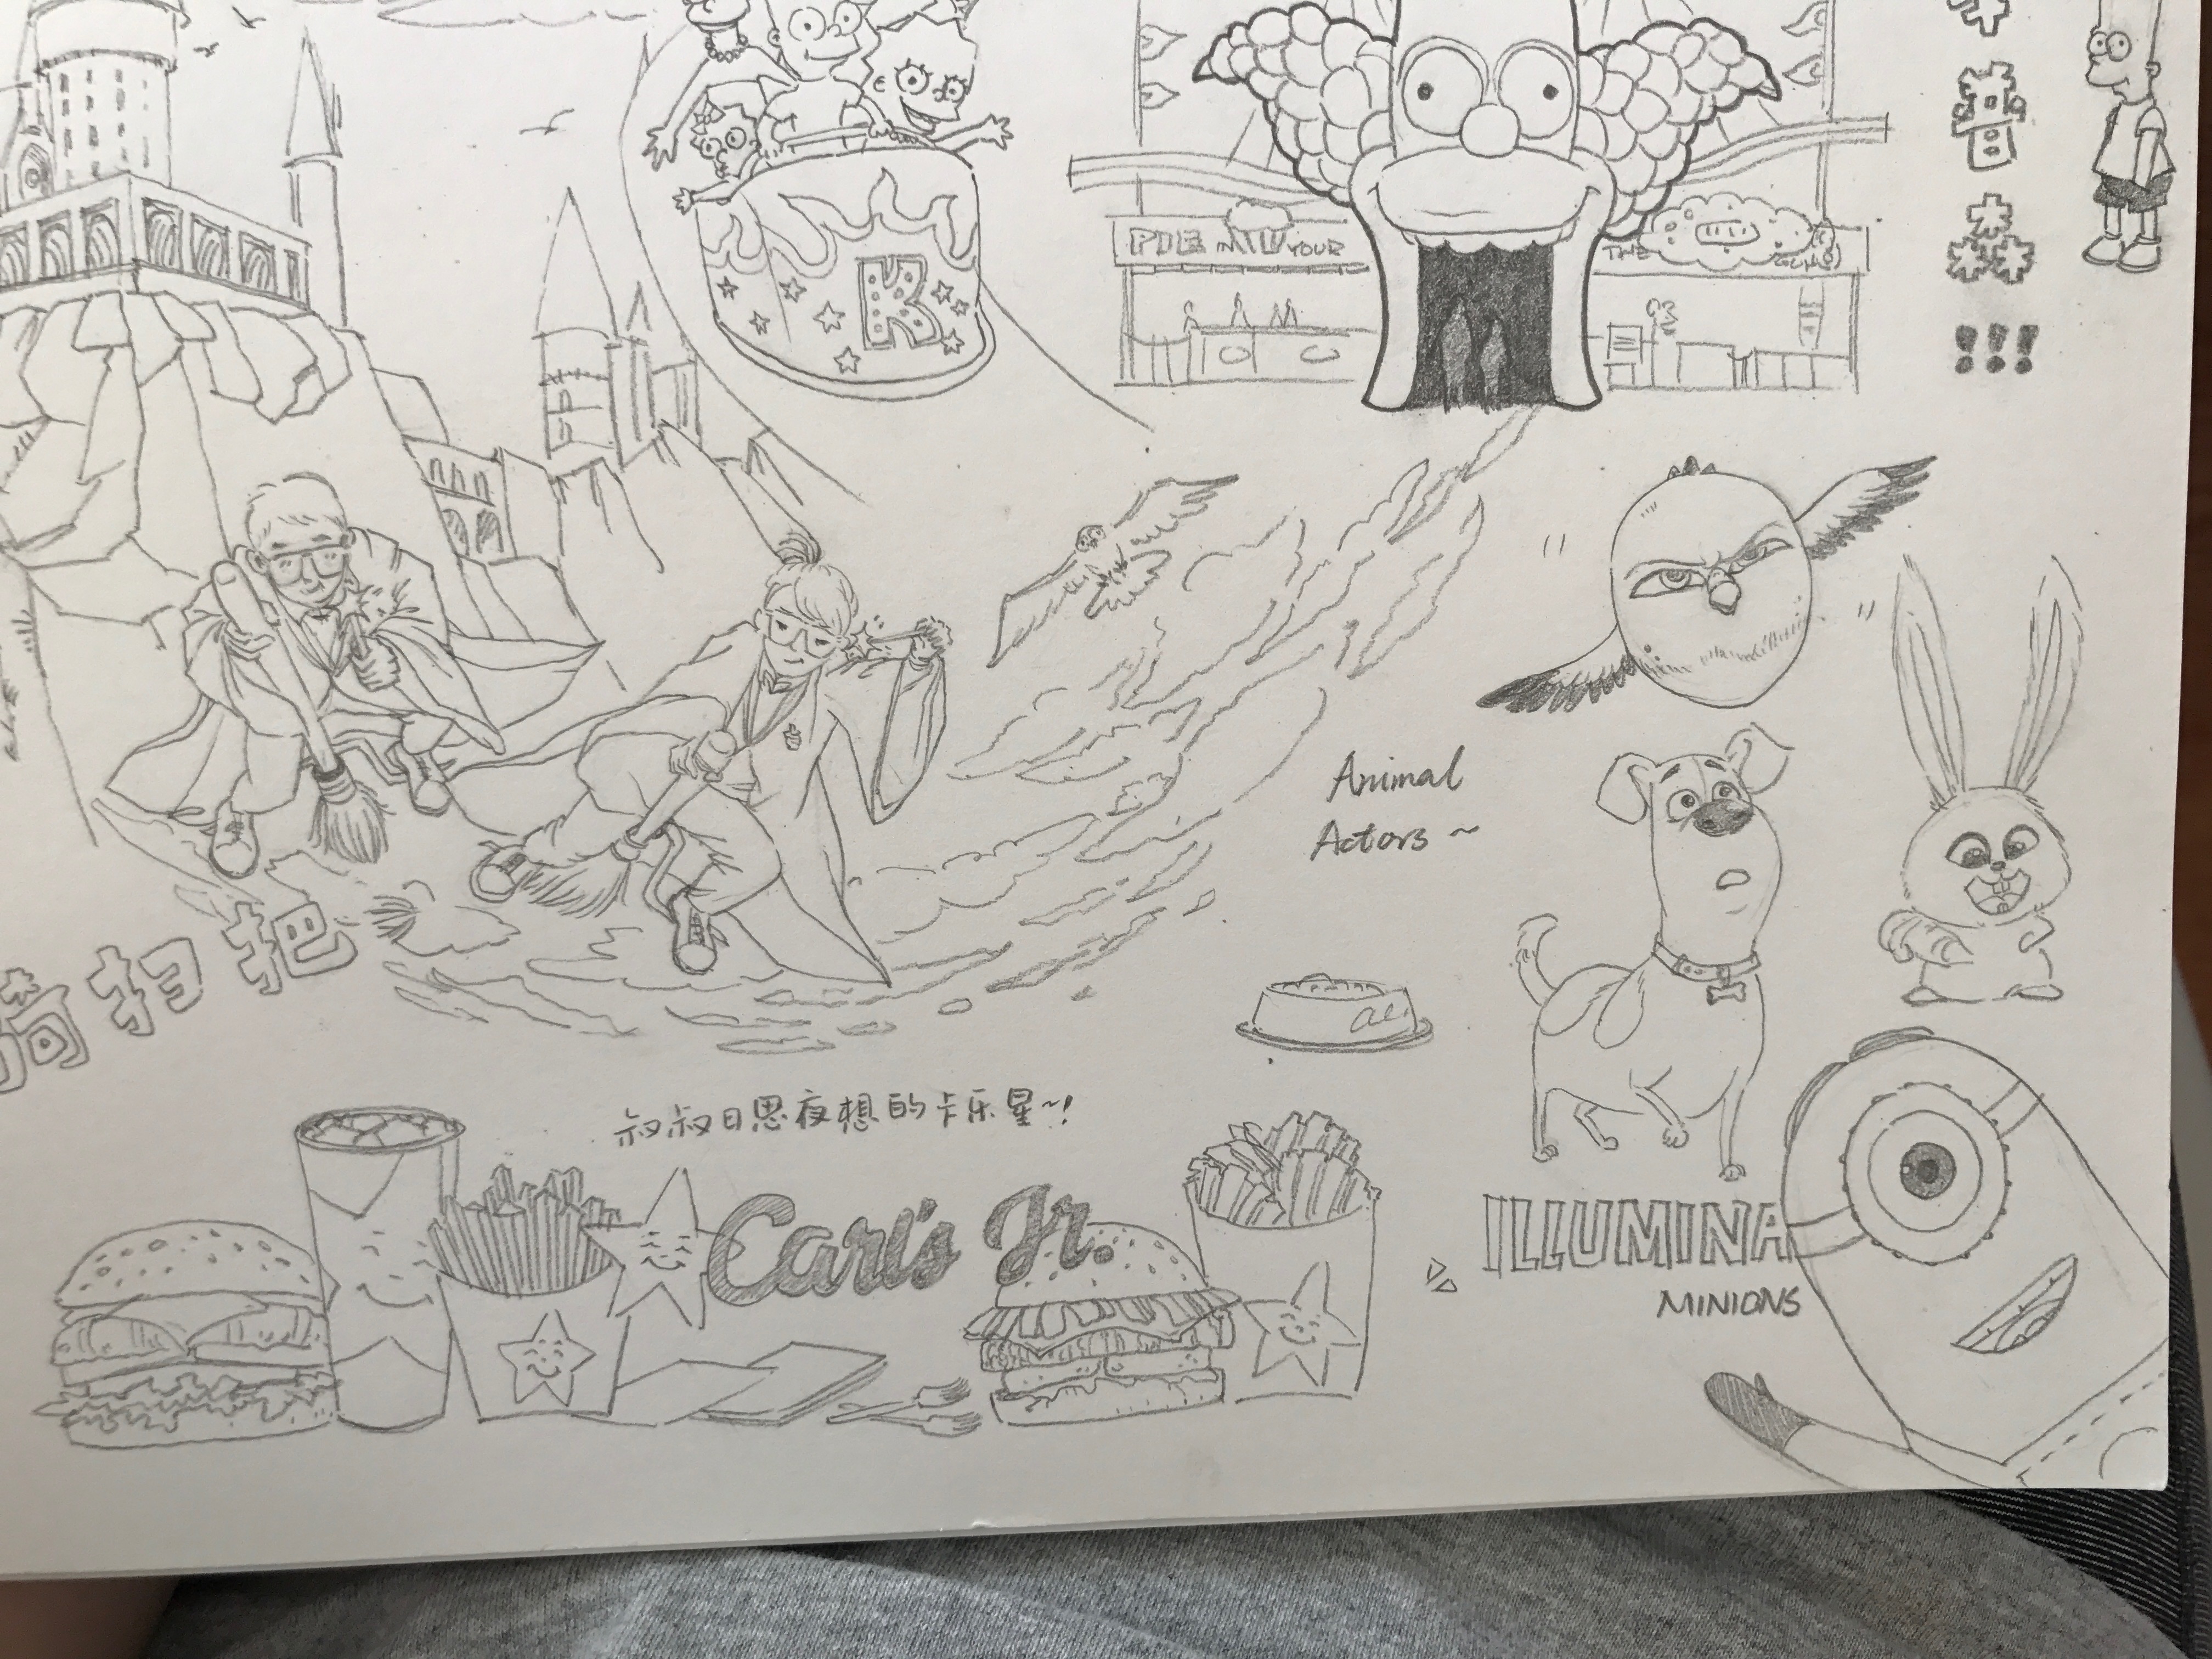 普
森
!!!
PIE IN YOUR
THE
K
Animal
Actors ~
骑扫把
叔叔日思夜想的卡乐星~!
Carl's Jr.
ILLUMINA
MINIONS